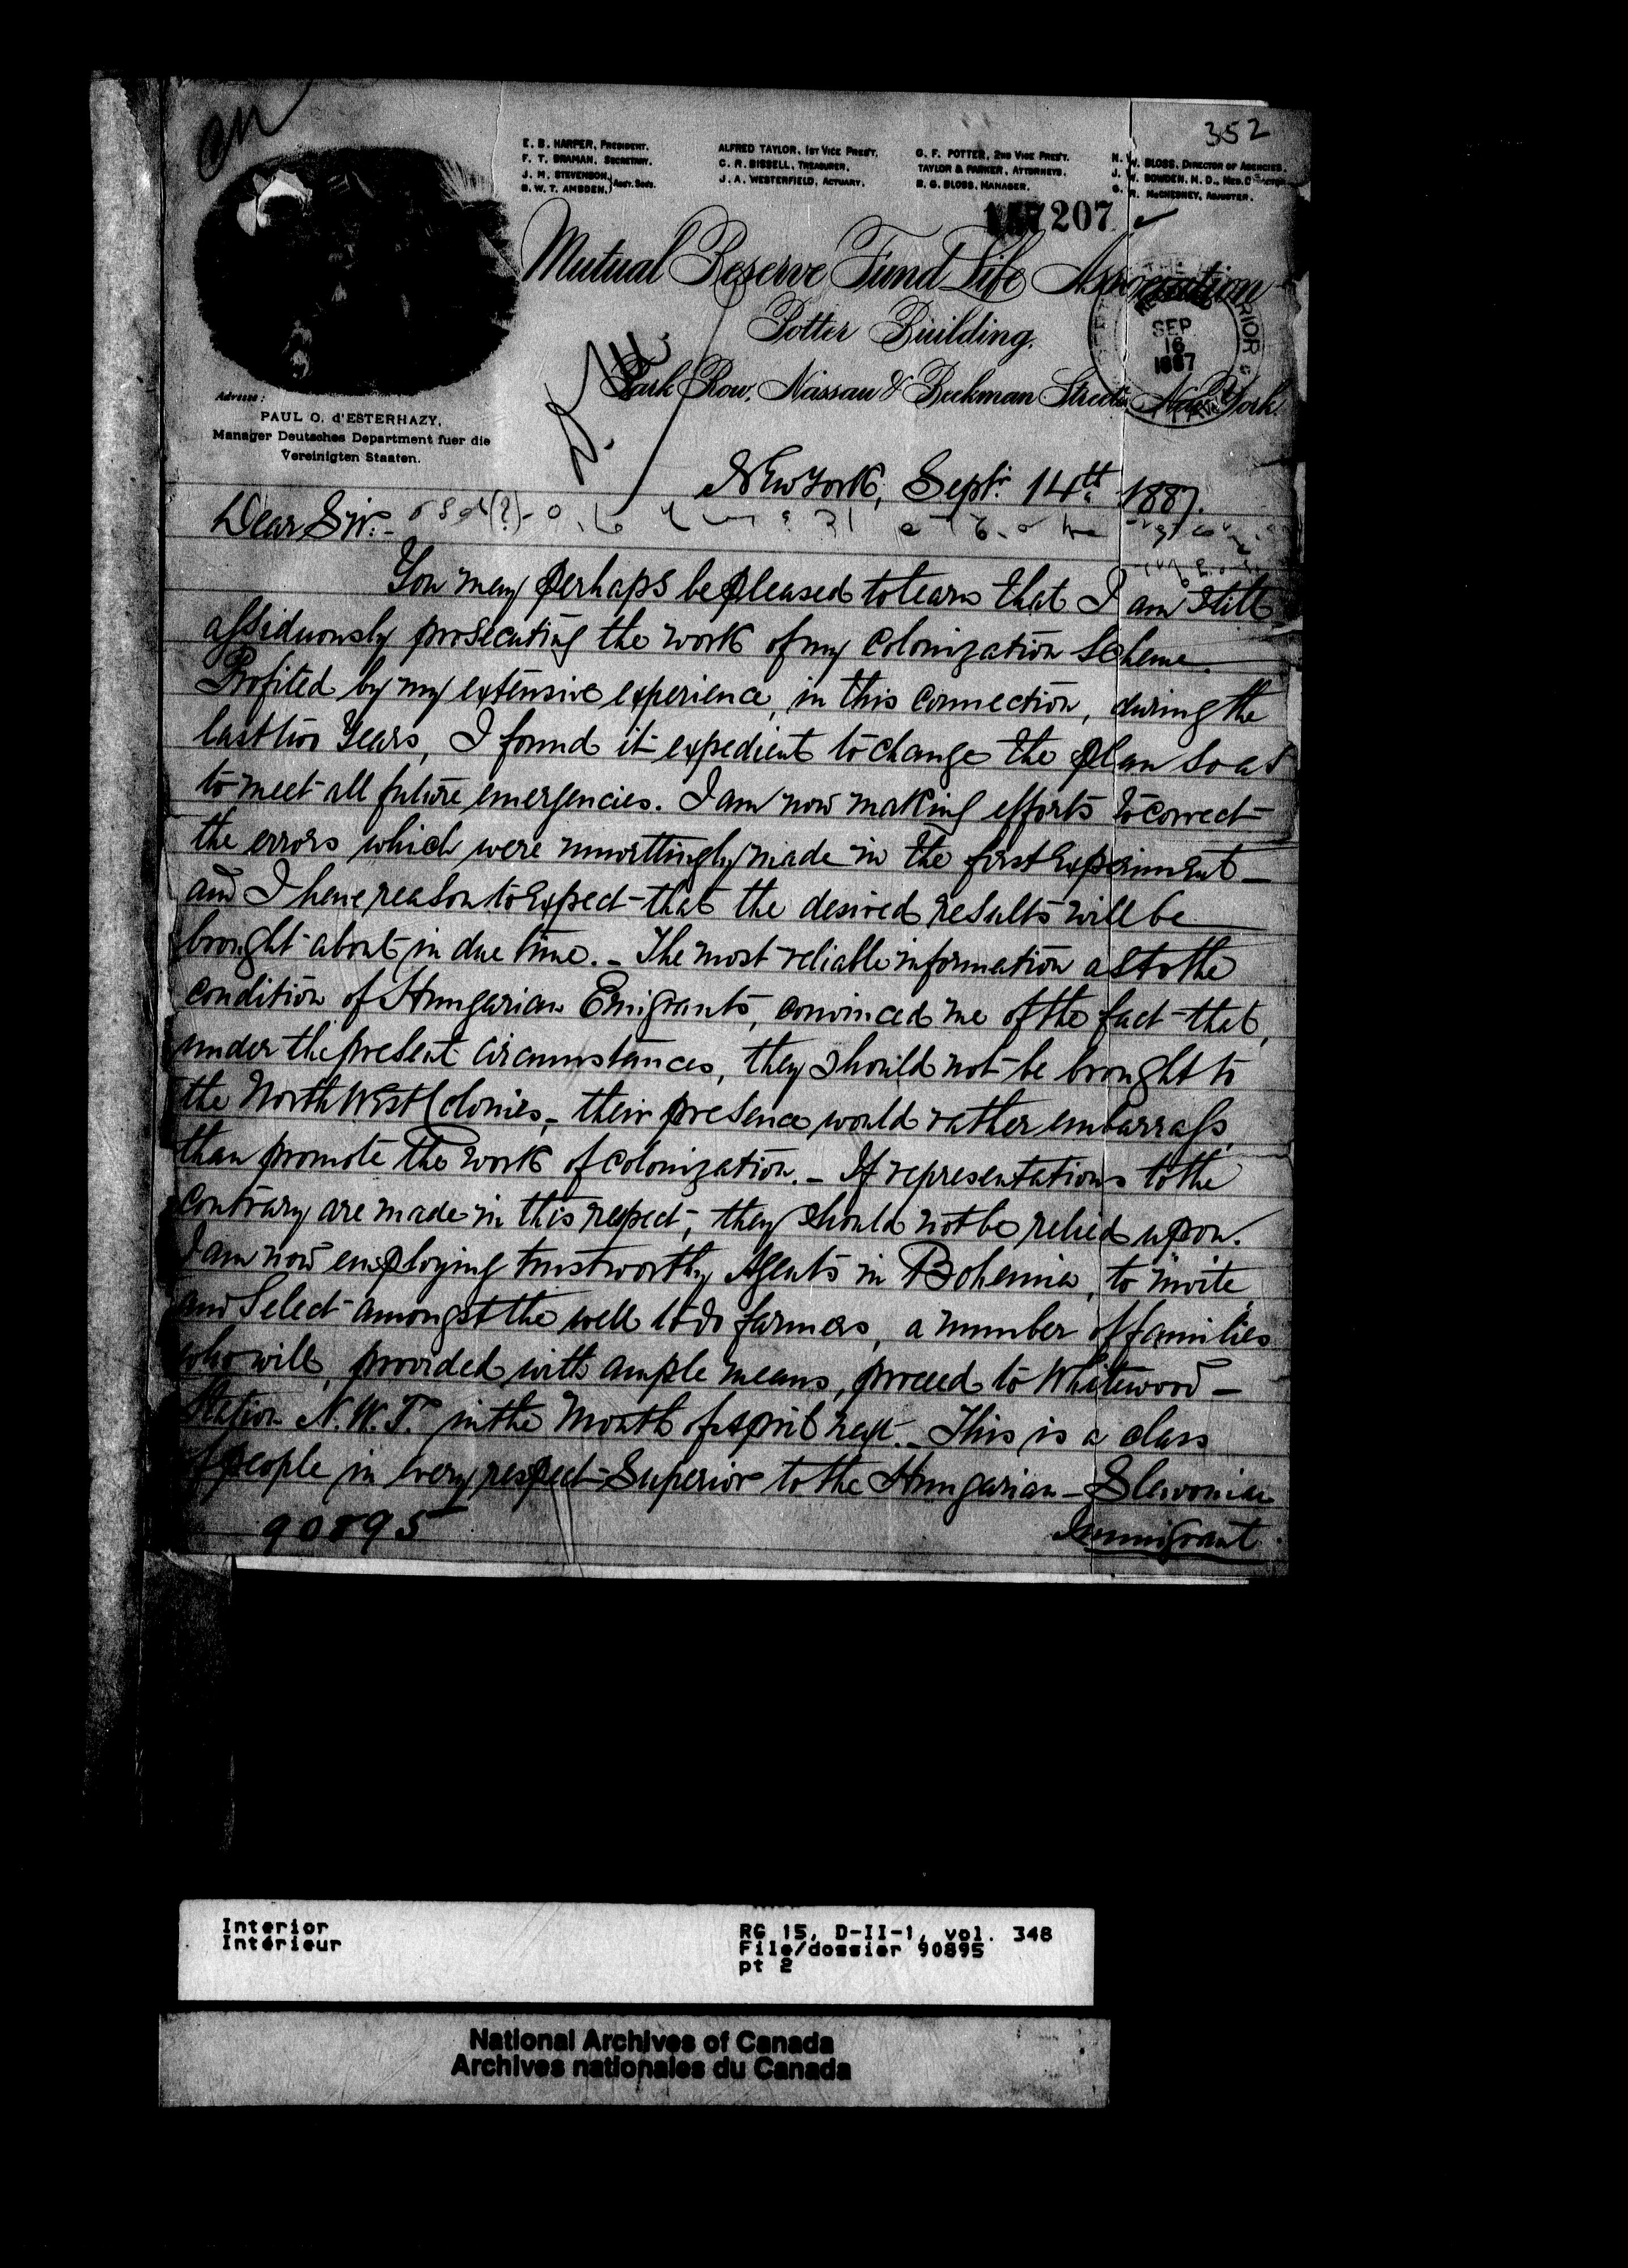 352
E. B. HARPER, PRESIDENT.
F. T. BRAMAN, SECRETARY.
J. M. STEVENSON,
B. W. T. AMSDEN, } ASST. SECS.
ALFRED TAYLOR, 1ST VICE PREST.
C. R. BISSELL, TREASURER.
J. A. WESTERFIELD, ACTUARY.
G. F. POTTER, 2ND VICE PREST.
TAYLOR & PARKER, ATTORNEYS.
B. G. BLOSS, MANAGER.
N. W. BLOSS, DIRECTOR OF AGENCIES.
J. W. BOWDEN, M. D., MED. DIRECTOR
G. R. McCHESNEY, ADJUSTER.
157207
Mutual Reserve Fund Life Association
Potter Building,
Park Row, Nassau & Beekman Streets, New York.
SEP
16
1887
Adresse:
PAUL O. d'ESTERHAZY,
Manager Deutsches Department fuer die
Vereinigten Staaten.
New York, Septr. 14th 1887.
Dear Sir:-
You may perhaps be pleased to learn that I am still
assiduously prosecuting the work of my colonization scheme.
Profited by my extensive experience, in this connection, during the
last two years, I found it expedient to change the plan so as
to meet all future emergencies. I am now making efforts to correct
the errors which were unwittingly made in the first Experiment -
and I have reason to Expect that the desired results will be
brought about in due time. - The most reliable information as to the
condition of Hungarian Emigrants, convinced me of the fact that,
under the present circumstances, they should not be brought to
the North West Colonies, - their presence would rather embarrass,
than promote the work of colonization. - If representations to the
contrary are made in this respect, they should not be relied upon.
I am now employing trustworthy Agents in Bohemia, to invite
and select amongst the well to do farmers, a number of families
who will, provided with ample means, proceed to Whitewood -
Station N.W.T. in the Month of April next. - This is a class
of people in every respect Superior to the Hungarian - Slavonian
90895
Immigrant
Interior
Intérieur
RG 15, D-II-1, vol. 348
File/dossier 90895
pt 2
National Archives of Canada
Archives nationales du Canada